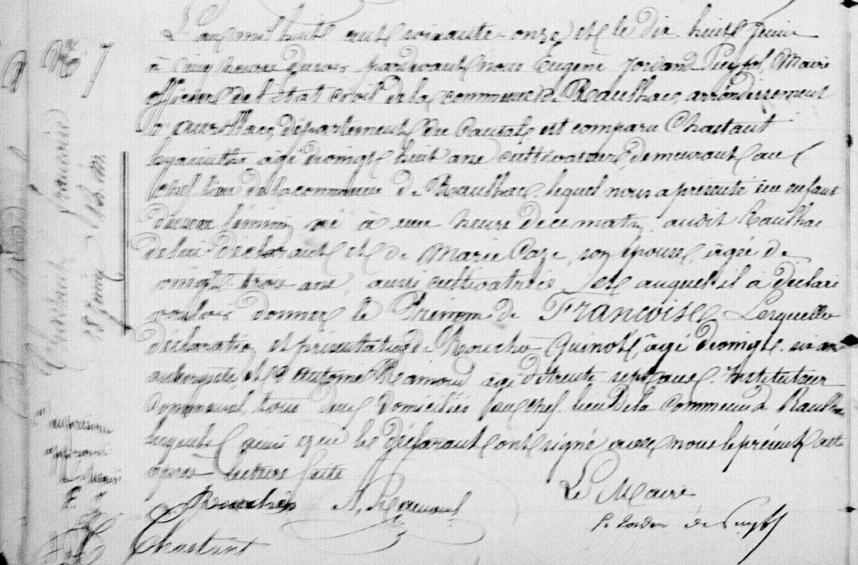 N° 7
Chastant Françoise
18 juin
L'an mil huit cent soixante-onze et le dix huit juin
à cinq heures du soir pardevant nous Eugène Jordand Puyfol Maire
officier de l'état civil de la commune de Raulhac, arrondissement
d'aurillac, département du Cantal est comparu Chastant
hyacinthe agé de vingt huit ans cultivateur, demeurant au
chef lieu de la commune de Raulhac, lequel nous a présenté un enfant
du sexe féminin né à une heure de ce matin, audit Raulhac
de lui déclarant et de Marie Caze, son épouse, agée de
vingt-trois ans, aussi cultivatrice, et auquel il a déclaré
vouloir donner le Prénom de Françoise, Lesquelles
déclaration et présentation de Rouchés âgé de vingt six ans
aubergiste et d'antoine Ramond âgé de trente sept ans Instituteur
Communal, tous deux domiciliés au chef lieu de la commune de Raulhac
lesquels ainsi que le déclarant ont signé avec nous le présent acte
après lecture faite
Rouchés A. Ramond Le Maire
Chastant